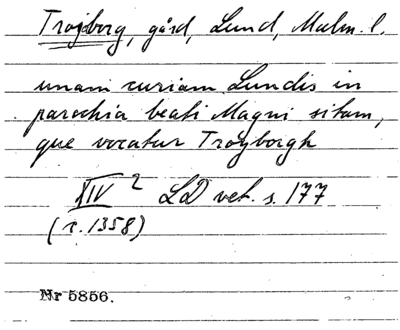 Trojborg, gård, Lund, Malm. l.
unam curiam Lundis in
parochia beati Magni sitam,
que vocatur Trøyborgh
XIV 2 LD vet. s. 177
(c. 1358)
Nr 5856.